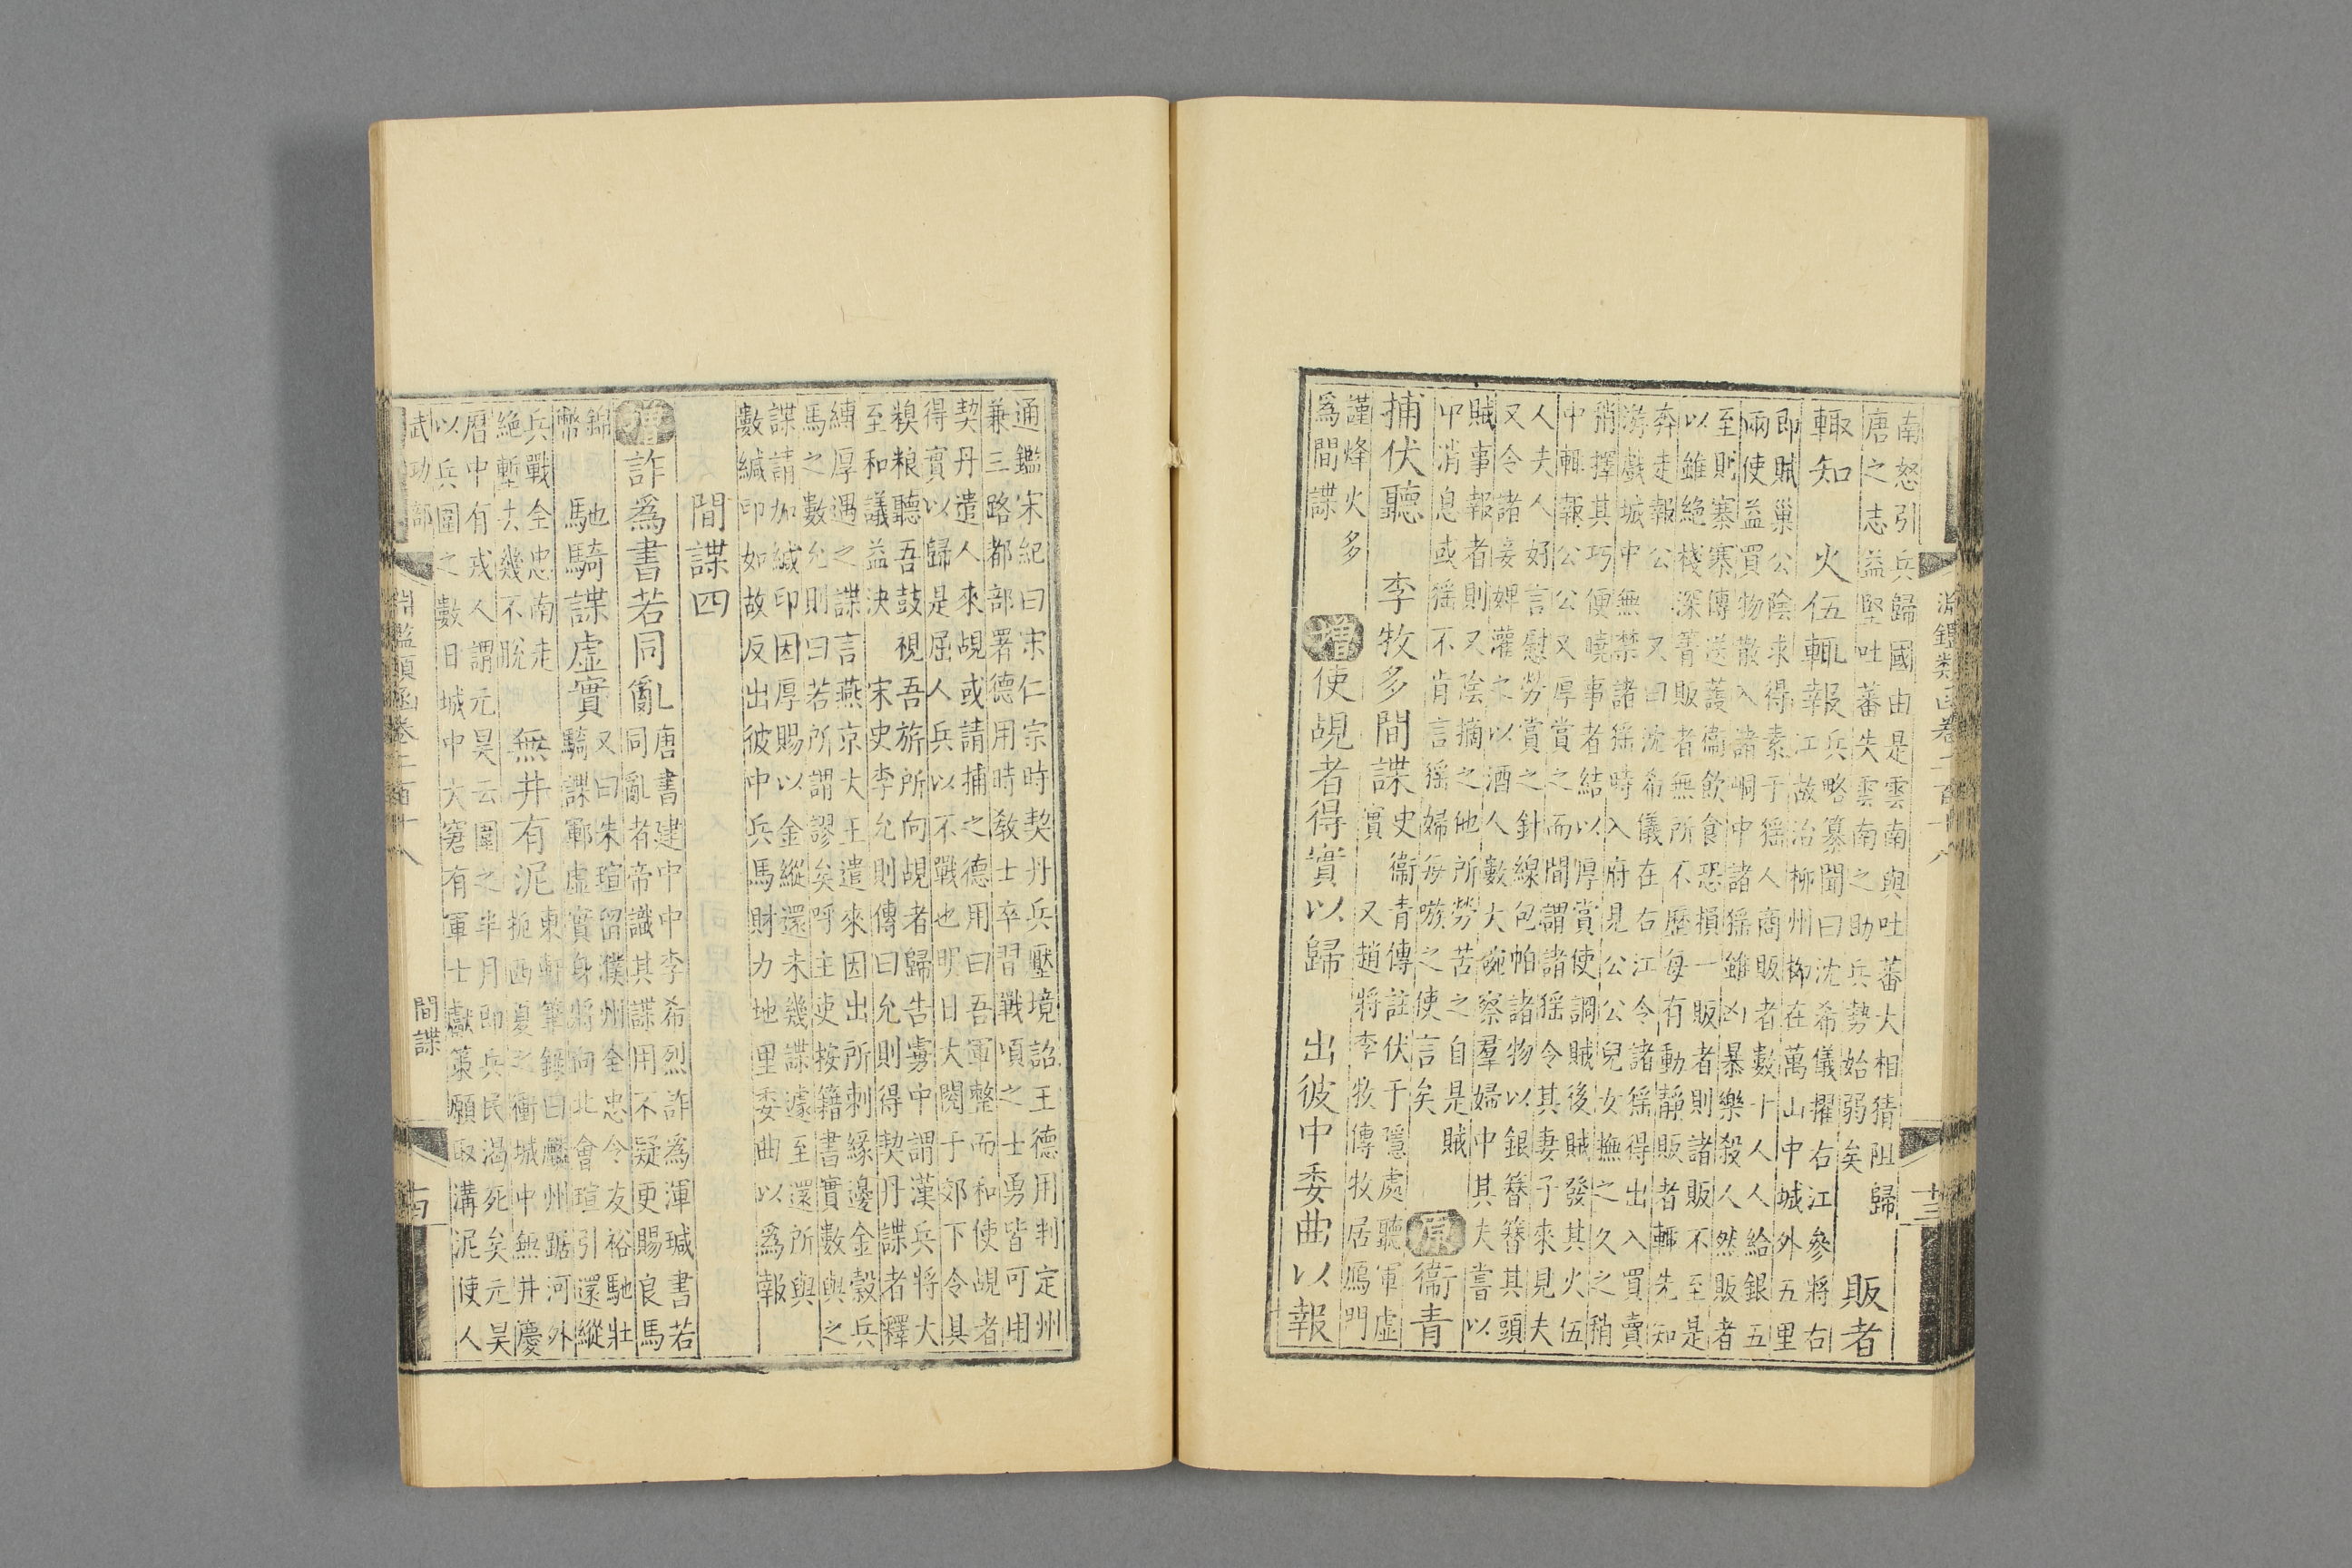 南怒引兵歸國由是雲南與吐蕃大相猜阻歸
唐之志益堅吐蕃失雲南之助兵勢始弱矣
販者
輙知
火伍輙報
兵略纂聞曰沈希儀擢右江參將右
江故治柳州柳在萬山中城外五里
即賊巢公陰求得素于猺人商販者數十人人給銀五
兩使益買物散入諸峒中諸猺雖凶暴樂殺人然販者
至則寨寨傳送護衞飲食恐損一販者則諸販不至是
以雖絶棧深菁販者無所不歷每有動靜販者輙先知
奔走報公
又曰沈希儀在右江令諸猺得出入買賣
游戲城中無禁諸猺時入府見公公兒女撫之久之稍
稍擇其巧便曉事者結以厚賞使調賊後賊發其火伍
中輙報公公又厚賞之而間謂諸猺令其妻子來見夫
人夫人好言慰勞賞之針線包帕諸物以銀簪簪其頭
又令諸妾婢灌之以酒人數大碗察羣婦中其夫嘗以
賊事報者則又陰摘之他所勞苦之自是賊
中消息或猺不肯言猺婦每嗾之使言矣
原
衞青
捕伏聽
李牧多間諜
史衞青傳註伏于隱處聽軍虛
實
又趙將李牧傳牧居鴈門
謹烽火多
爲間諜
增
使覘者得實以歸
出彼中委曲以報
淵鑑類函卷二百十八
十三
通鑑宋紀曰宋仁宗時契丹兵壓境詔王德用判定州
兼三路都部署德用時敎士卒習戰頃之士勇皆可用
契丹遣人來覘或請捕之德用曰吾軍整而和使覘者
得實以歸是屈人兵以不戰也明日大閱于郊下令具
糗粮聽吾鼓視吾旂所向覘者歸告虜中謂漢兵將大
至和議益決
宋史李允則傳曰允則得契丹諜者釋
縛厚遇之諜言燕京大王遣來因出所刺緣邊金穀兵
馬之數允則曰若所謂謬矣呼主吏按籍書實數與之
諜請加緘印因厚賜以金縱還未幾諜遽至還所與
數緘印如故反出彼中兵馬財力地里委曲以爲報
間諜四
增
詐爲書若同亂
唐書建中中李希烈詐爲渾瑊書若
同亂者帝識其諜用不疑更賜良馬
錦
幣
馳騎諜虛實
又曰朱瑄留濮州全忠令友裕馳壯
騎諜鄆虛實身將向北會瑄引還縱
兵戰全忠南走
絶塹去幾不脫
無井有泥
東軒筆錄曰麟州踞河外
扼西夏之衝城中無井慶
曆中有戎人謂元昊云圍之半月即兵民渴死矣元昊
以兵圍之數日城中大窘有軍士獻策願取溝泥使人
武功部
淵鑑類函卷二百十八
間諜